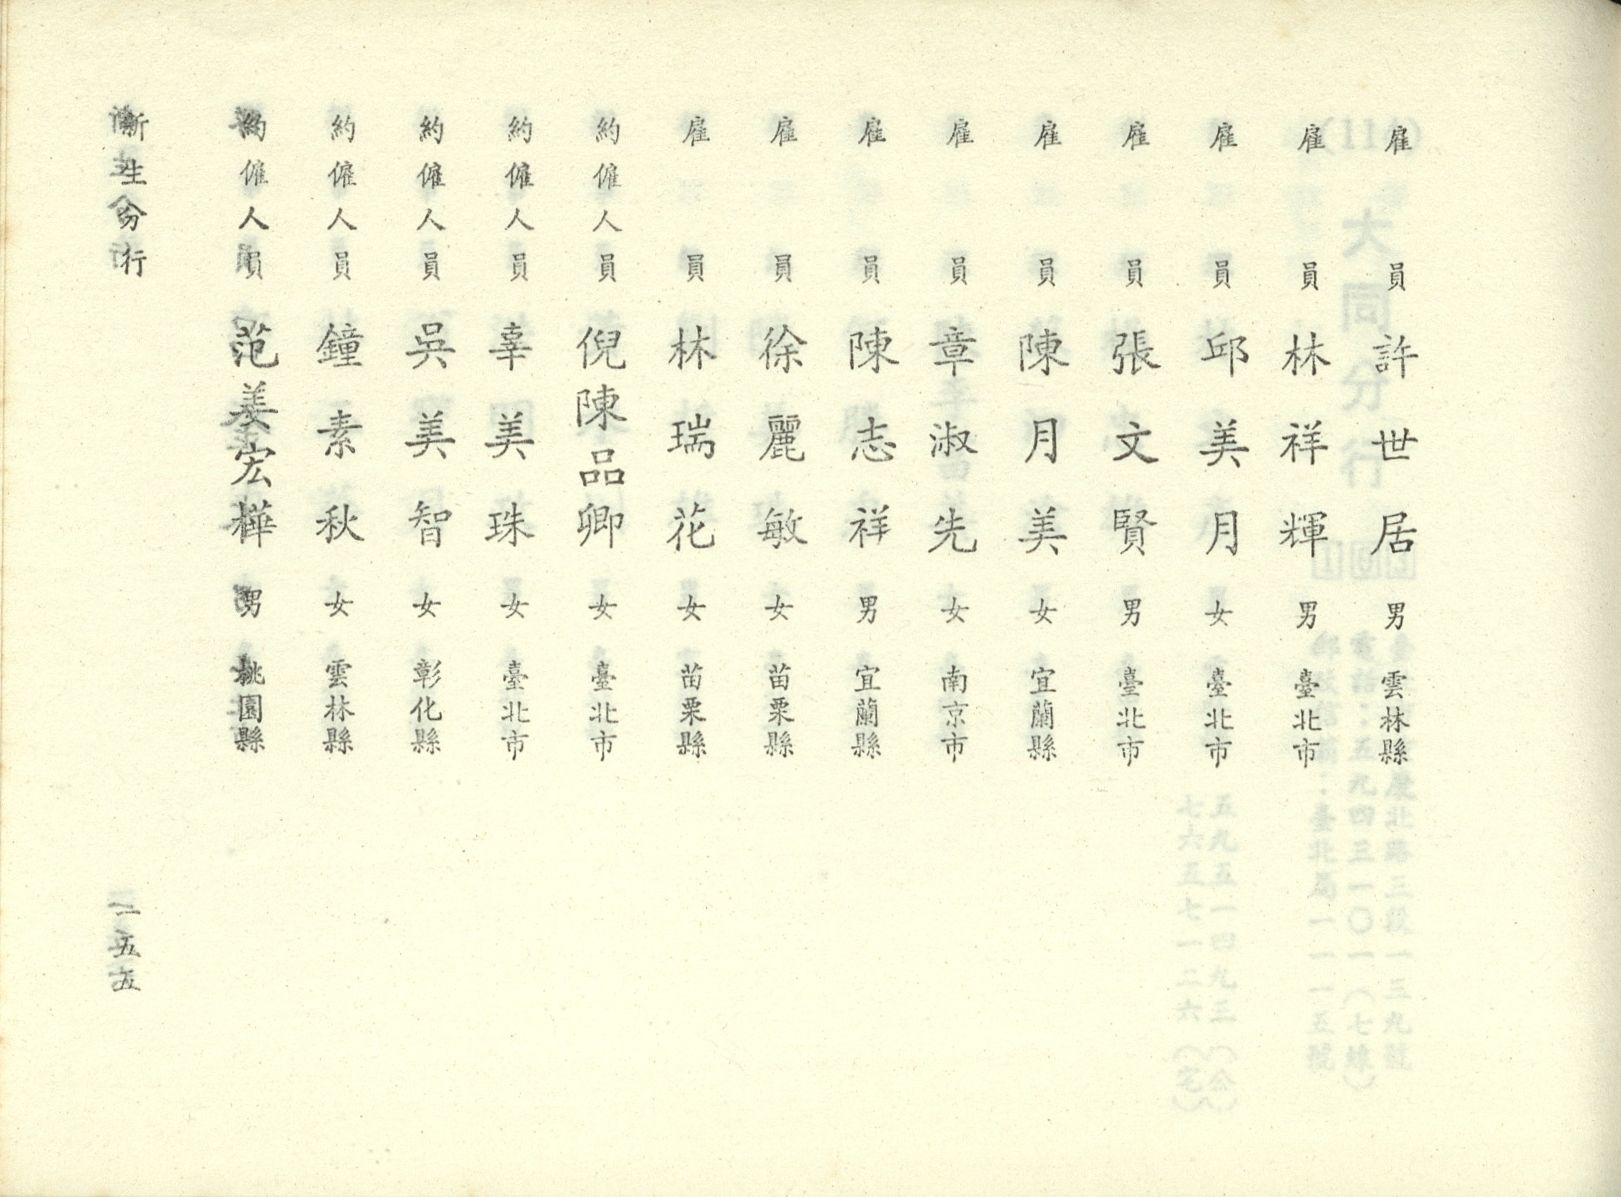 雇員 許世居 男 雲林縣
雇員 林祥輝 男 臺北市
雇員 邱美月 女 臺北市
雇員 張文賢 男 臺北市
雇員 陳月美 女 宜蘭縣
雇員 章淑先 女 南京市
雇員 陳志祥 男 宜蘭縣
雇員 徐麗敏 女 苗栗縣
雇員 林瑞花 女 苗栗縣
約僱人員 倪陳品卿 女 臺北市
約僱人員 辜美珠 女 臺北市
約僱人員 吳美智 女 彰化縣
約僱人員 鐘素秋 女 雲林縣
約僱人員 范姜宏樺 男 桃園縣
新生分行
一五五